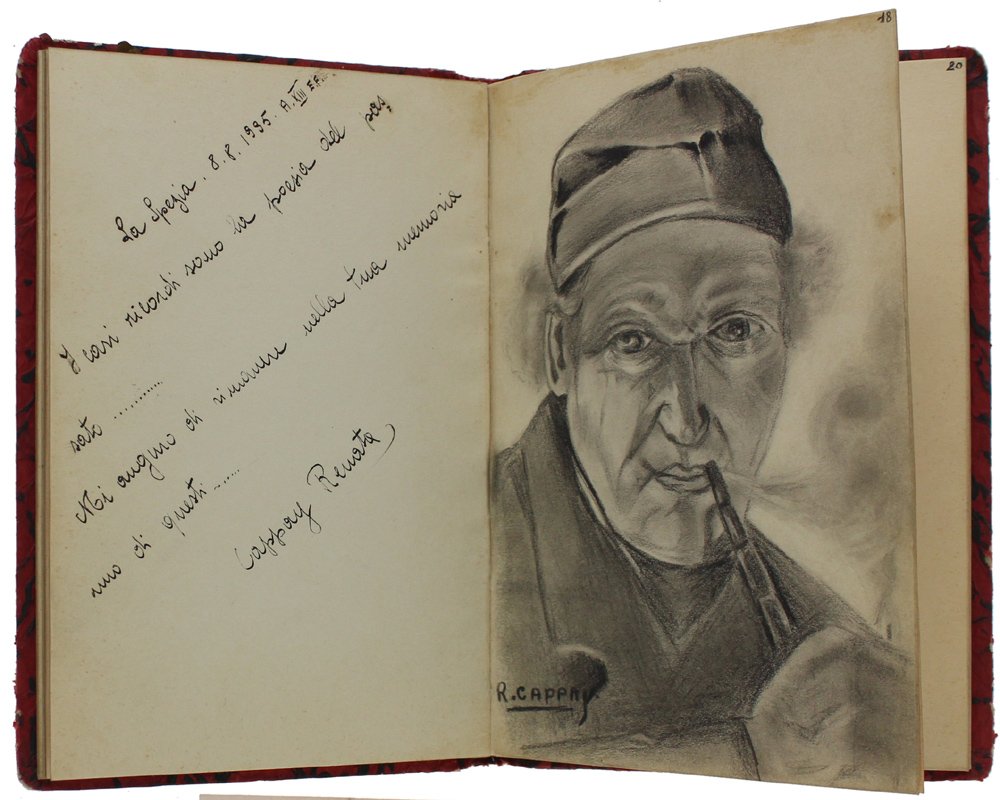 La Spezia. 8.8.1935. A. XIII E.F.
I cari ricordi sono la poesia del pas,
sato ............
Mi auguro di rimanere nella tua memoria
uno di questi ......
Cappay Renata
18
R. CAPPAY.
20